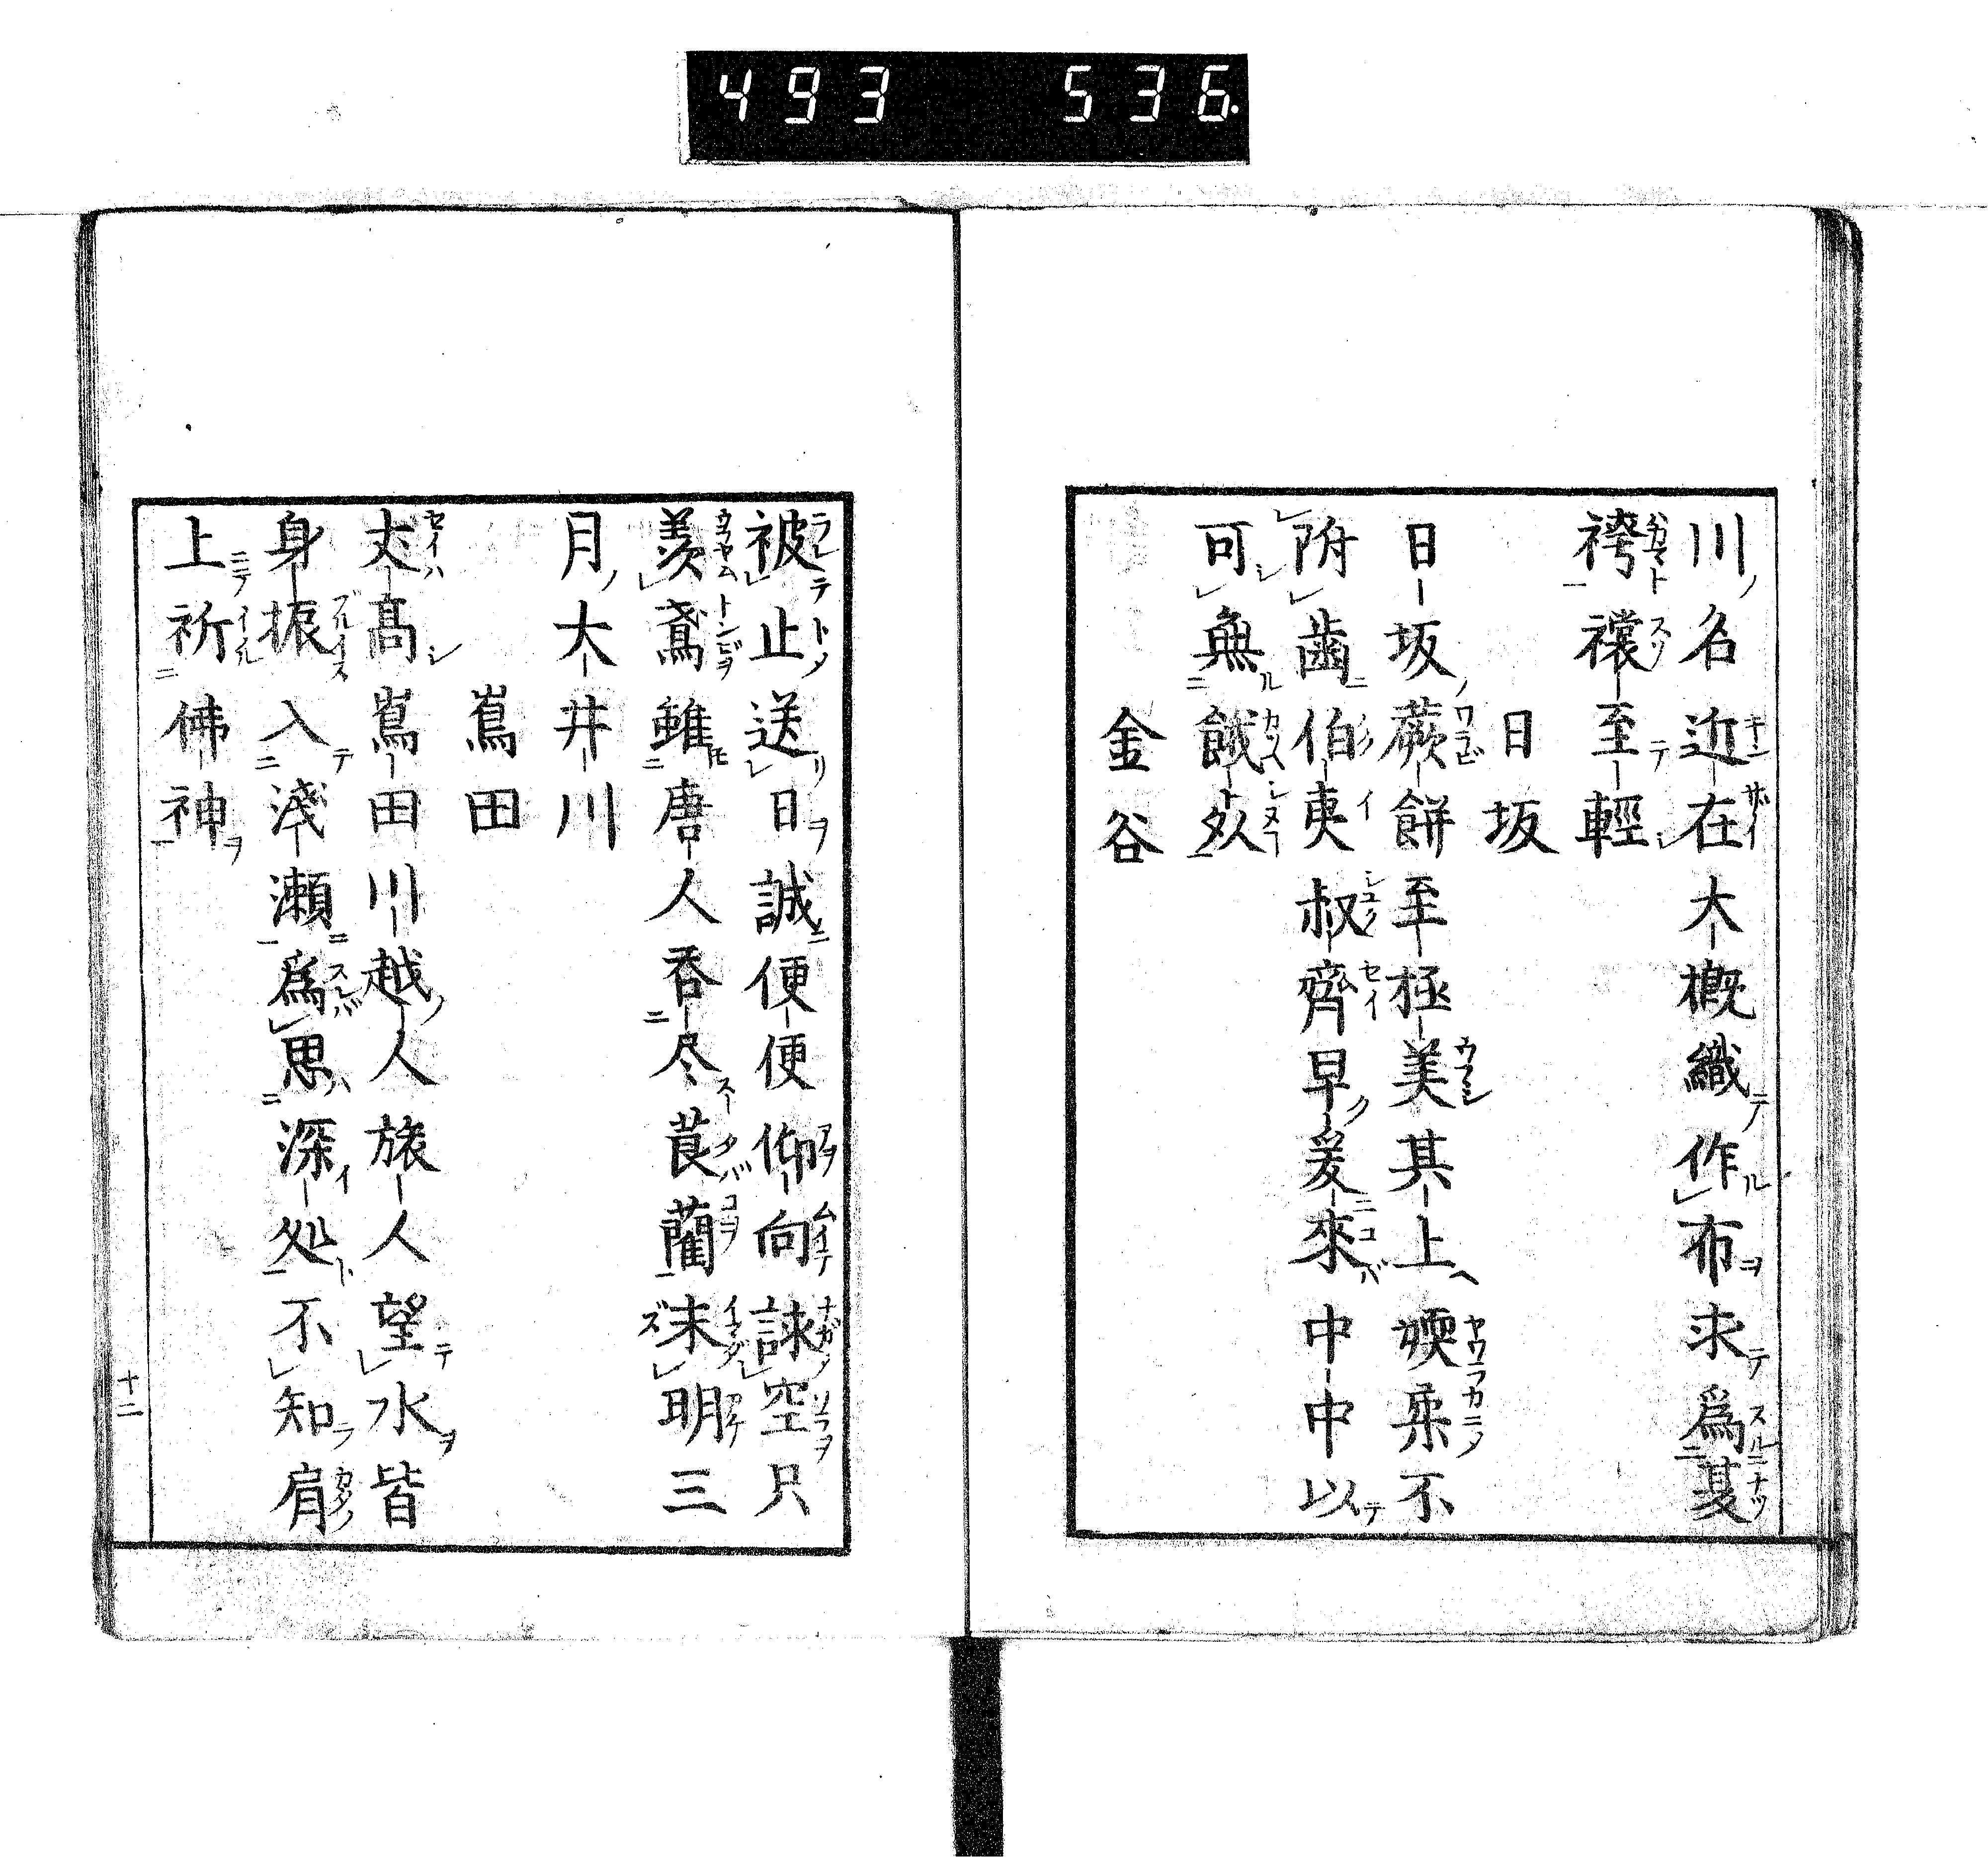 493 536.
川名近在大概織作布求為夏
袴襠至輕
日坂
日坂蕨餅至極美其上煗柔不
附齒伯夷叔齊早爰來中中以
可無餓死
金谷
被止送日誠便便仰向詠空只
羨鳶雖唐人呑尽莨藺未明三
月大井川
嶌田
丈高嶌田川越人旅人望水皆
身振入淺瀬為思深処不知肩
上祈佛神
十二